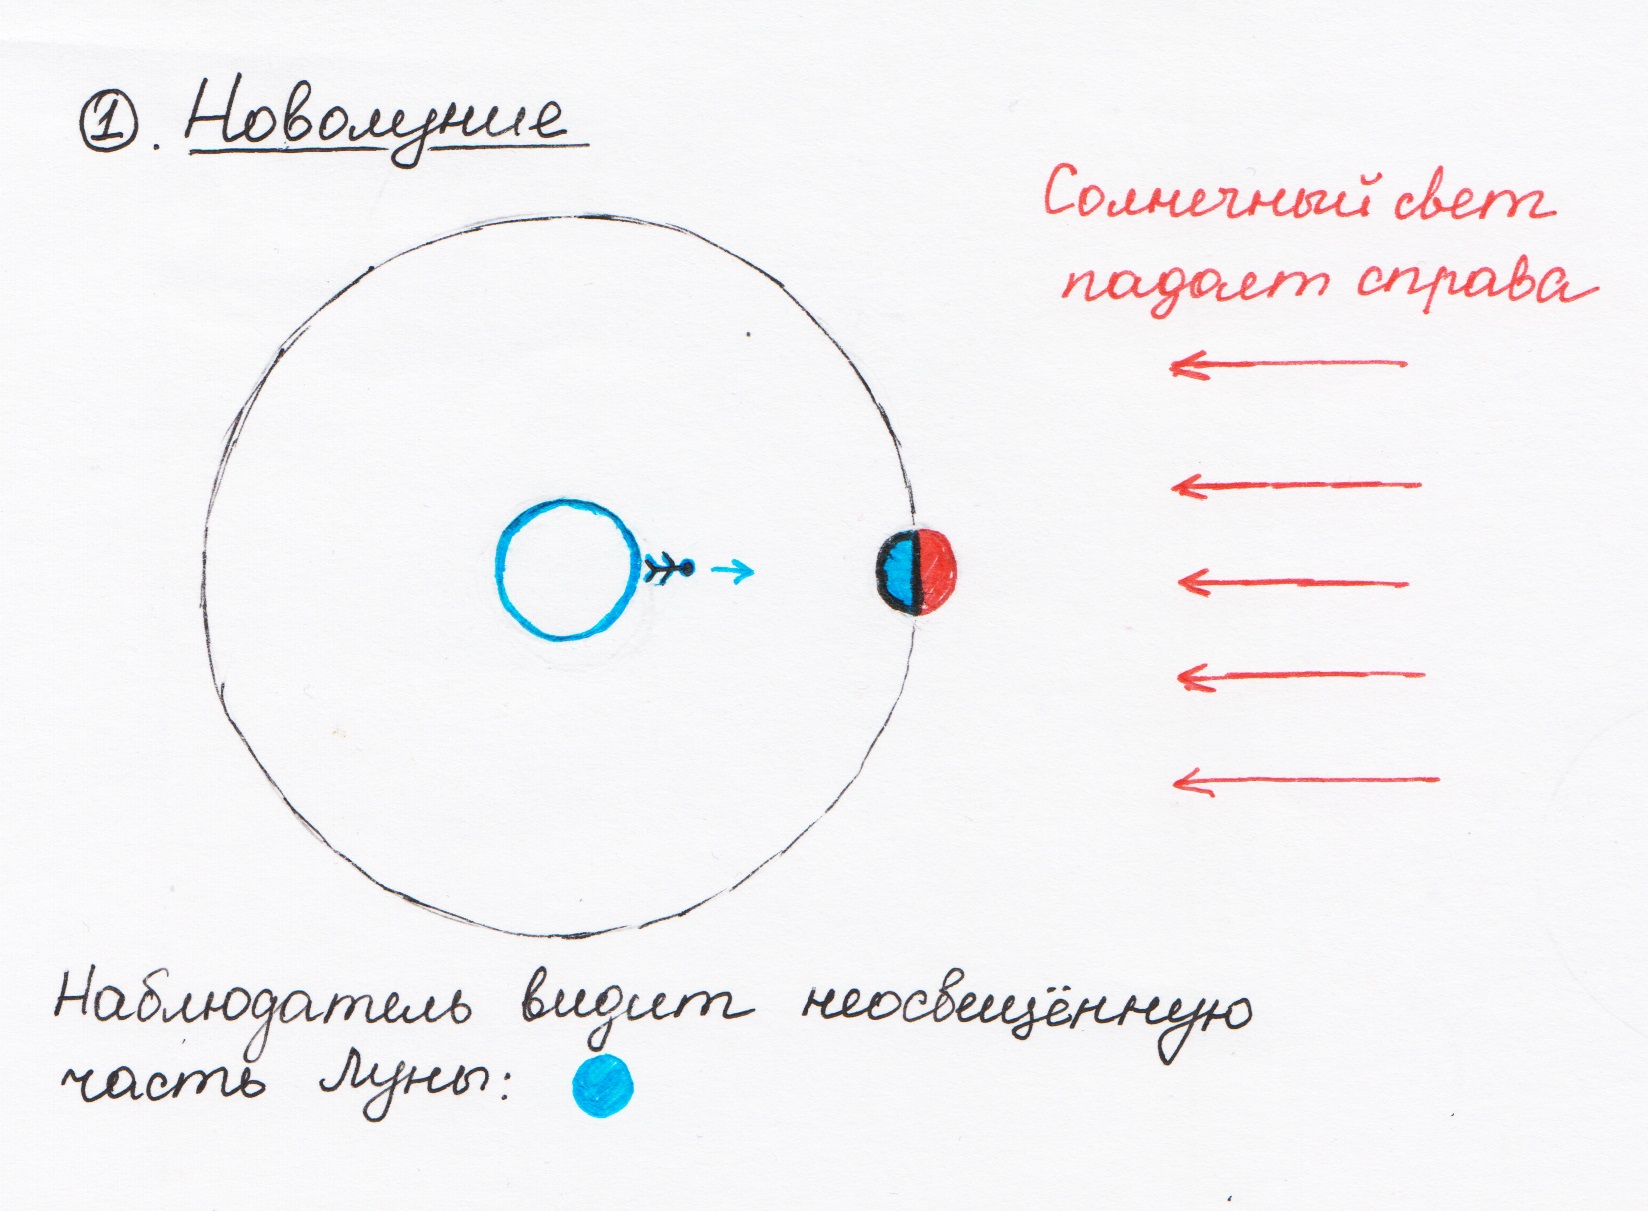 1. Новолуние
Солнечный свет
падает справа
Наблюдатель видит неосвещённую
часть Луны: